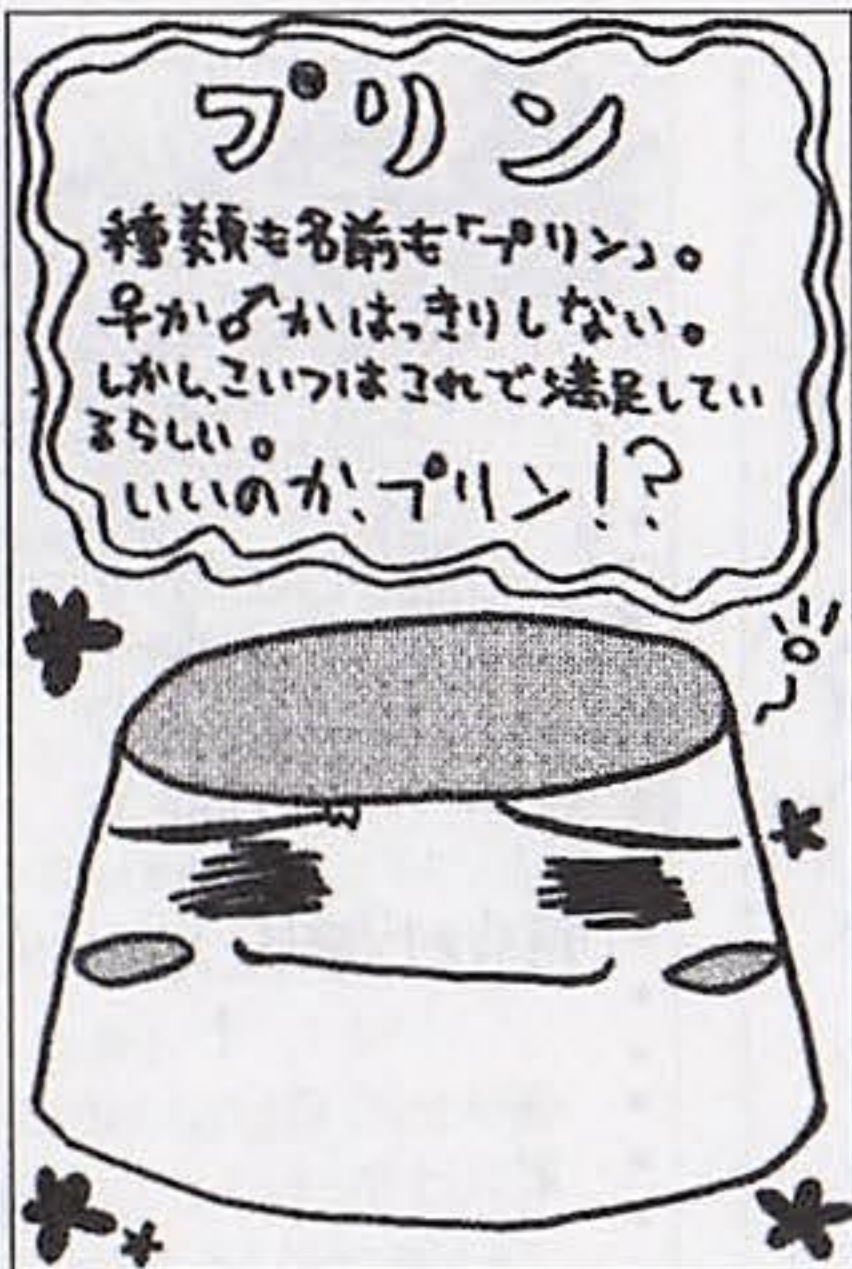 プリン
種類も名前も「プリン」。
♀か♂かはっきりしない。
しかし、こいつはこれで満足してい
るらしい。
いいのか、プリン!?